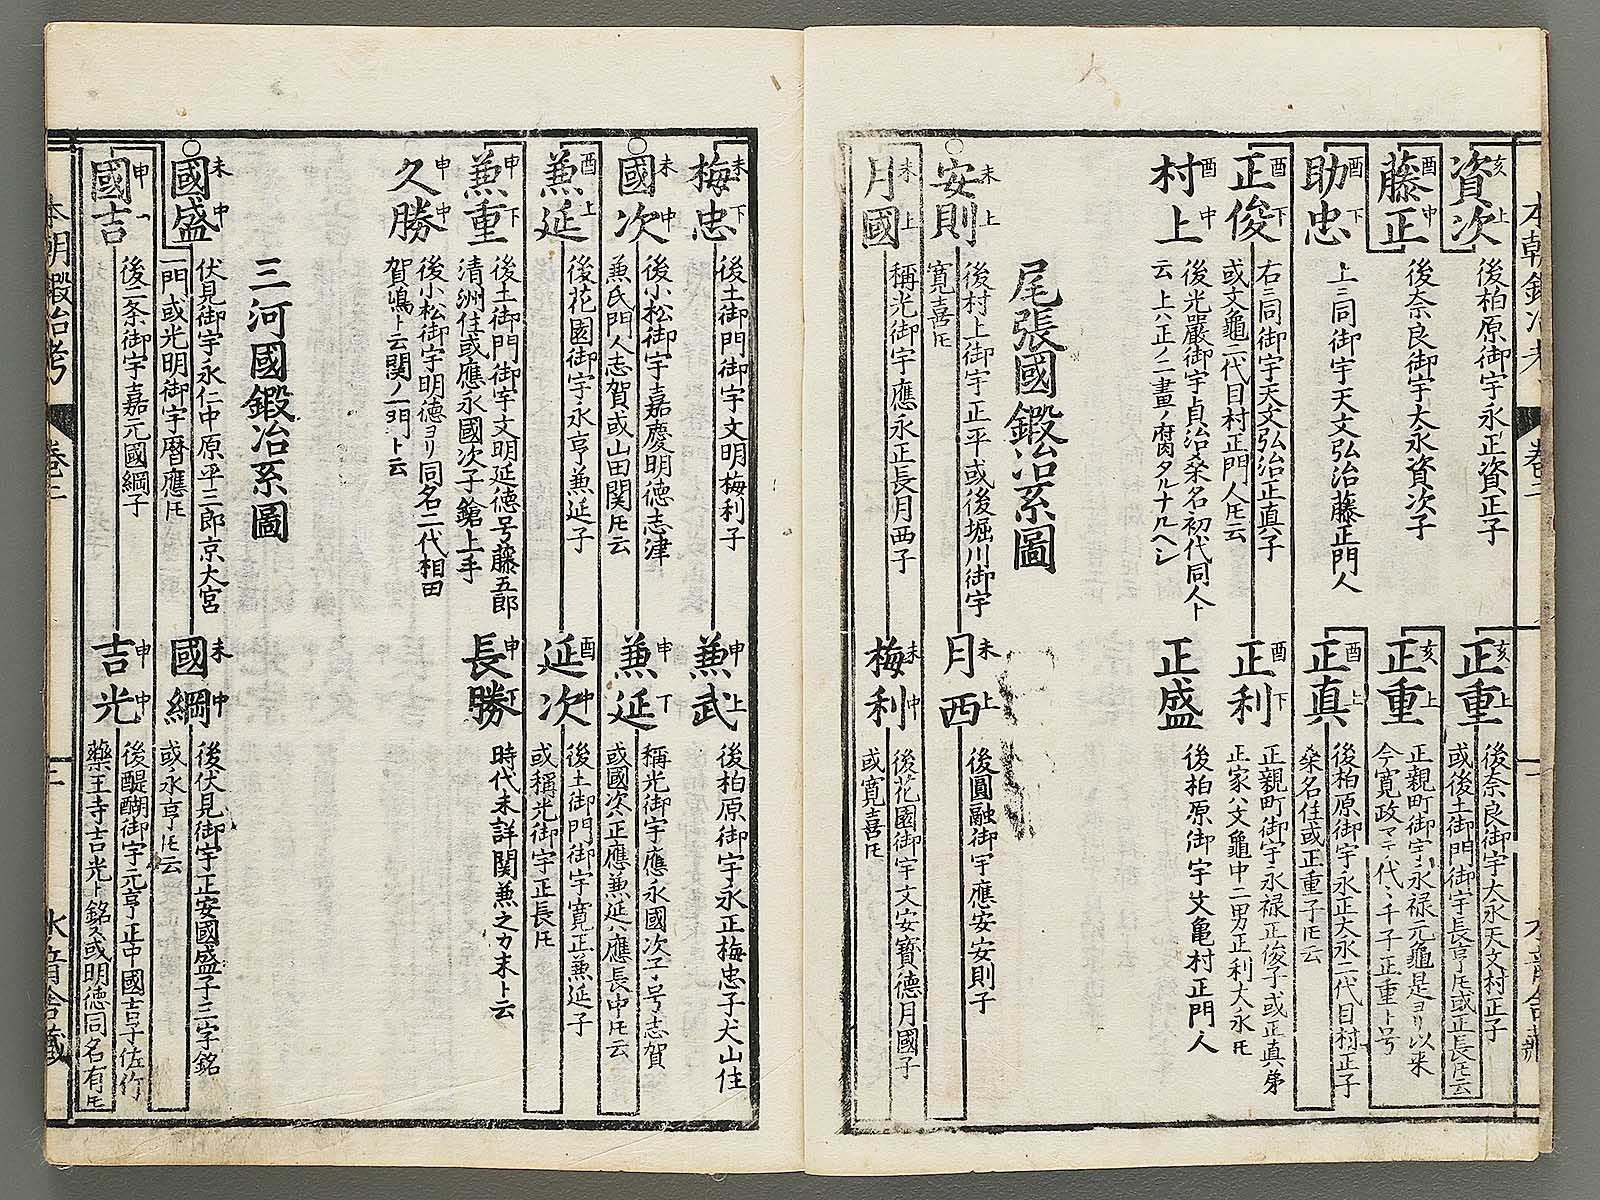 本朝鍛冶考
卷二
水竜舎蔵
亥
資次
上
後柏原御宇永正資正子
亥
正重
上
後奈良御宇大永天文村正子
或後土御門御宇長亨圧或正長圧云
酉
藤正
中
後奈良御宇大永資次子
亥
正重
上
正親町御宇永禄元龜是ヨリ以来
今寛政マテ代〻千子正重ト号
酉
助忠
下
上ニ同御宇天文弘治藤正門人
酉
正真
上
後柏原御宇永正大永二代目村正子
桑名住或正重子圧云
酉
正俊
下
右ニ同御宇天文弘治正真子
或文龜二代目村正門人圧云
酉
正利
下
正親町御宇永禄正俊子或正真弟
正家ハ文龜中二男正利大永圧
酉
村上
中
後光嚴御宇貞治桑名初代同人ト
云上六正ノ二畫ノ腐タルナルヘシ
正盛
後柏原御宇文亀村正門人
尾張國鍛冶系圖
未
安則
上
後村上御宇正平或後堀川御宇
寛喜圧
未
月西
上
後圓融御宇應安安則子
未
月國
上
稱光御宇應永正長月西子
未
梅利
中
後花園御宇文安寳德月國子
或寛喜圧
未
梅忠
下
後土御門御宇文明梅利子
申
兼武
上
後柏原御宇永正梅忠子犬山住
未
國次
中
後小松御宇嘉慶明德志津
兼氏門人志賀或山田関圧云
申
兼延
下
稱光御宇應永國次子号志賀
或國次ハ正應兼延ハ應長中圧云
酉
兼延
上
後花園御宇永亨兼延子
酉
延次
中
後土御門御宇寛正兼延子
或稱光御宇正長圧
申
兼重
下
後土御門御宇文明延德号藤五郎
清洲住或應永國次子鎗上手
申
長勝
下
時代未詳関兼之カ末ト云
申
久勝
中
後小松御宇明德ヨリ同名二代相田
賀嶋ト云関ノ一門ト云
三河國鍛冶系圖
未
國盛
中
伏見御宇永仁中原平三郎京大宮
一門或光明御宇暦應圧
未
國綱
中
後伏見御宇正安國盛子三字銘
或永亨圧云
申
國吉
後二条御宇嘉元國綱子
申
吉光
中
後醍醐御宇元亨正中國吉子佐竹
藥王寺吉光ト銘ス或明德同名有圧
本朝鍛冶考
卷二
水竜舎蔵